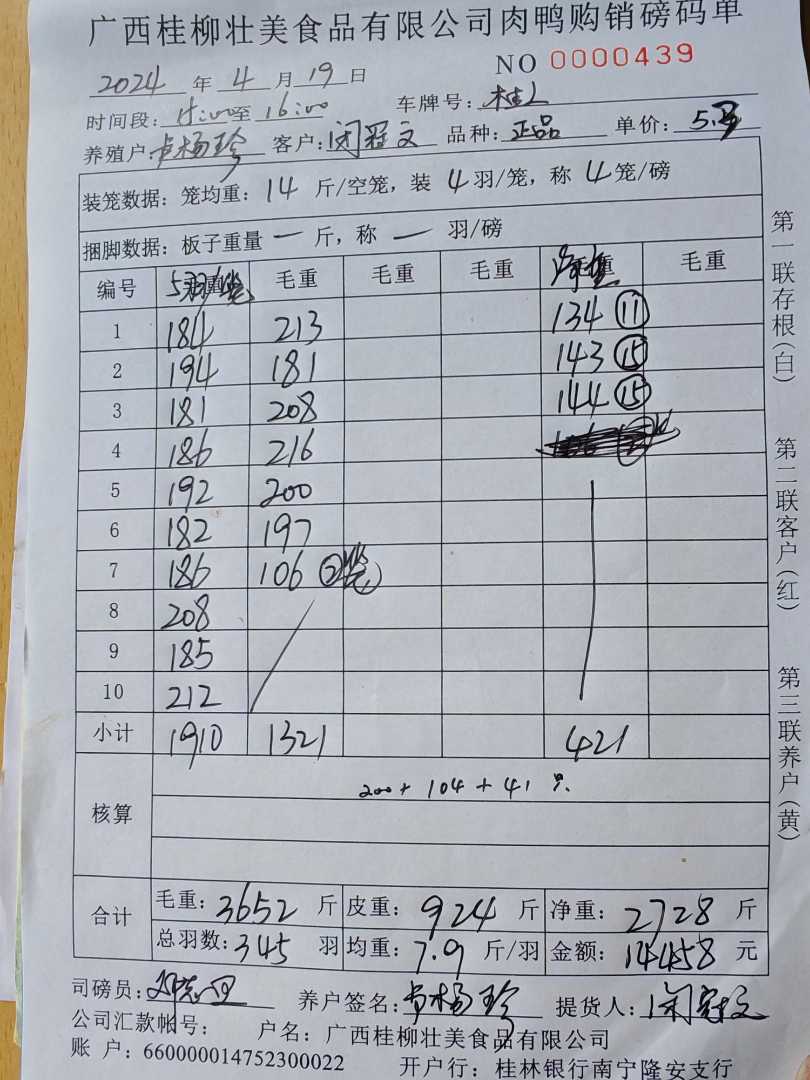 广西桂柳壮美食品有限公司肉鸭购销磅码单
NO 0000439
2024 年 4 月 19 日
时间段: 14:00至 16:00 车牌号: 桂L
养殖户: 卢杨珍 客户: 闭冠文 品种: 正品 单价: 5.3
装笼数据: 笼均重: 14 斤/空笼, 装 4 羽/笼, 称 4 笼/磅
捆脚数据: 板子重量 一 斤, 称 一 羽/磅
编号 5羽/笼 毛重 毛重 毛重 净重 毛重
1 184 213 134 ⑪
2 194 181 143 ⑮
3 181 208 144 ⑮
4 186 216
5 192 200
6 182 197
7 186 106 ②笼
8 208
9 185
10 212
小计 1910 1321 421
核算 200+104+41只.
合计 毛重: 3652 斤 皮重: 924 斤 净重: 2728 斤
总羽数: 345 羽 均重: 7.9 斤/羽 金额: 14458 元
司磅员: 养户签名: 卢杨珍 提货人: 闭冠文
公司汇款帐号: 户名: 广西桂柳壮美食品有限公司
账 户: 660000014752300022 开户行: 桂林银行南宁隆安支行
第一联存根(白)
第二联客户(红)
第三联养户(黄)